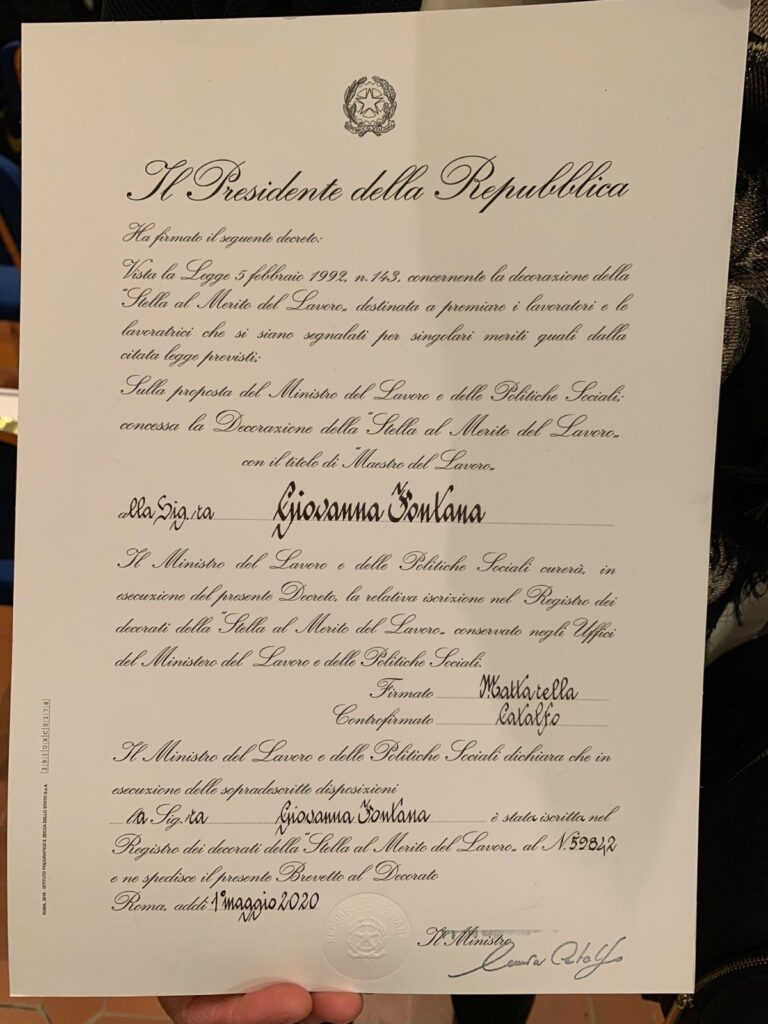 Il Presidente della Repubblica
Ha firmato il seguente decreto:
Vista la Legge 5 febbraio 1992, n. 143, concernente la decorazione della
"Stella al Merito del Lavoro„ destinata a premiare i lavoratori e le
lavoratrici che si siano segnalati per singolari meriti quali dalla
citata legge previsti;
Sulla proposta del Ministro del Lavoro e delle Politiche Sociali;
concessa la Decorazione della "Stella al Merito del Lavoro„
con il titolo di "Maestro del Lavoro„
alla Sig.ra Giovanna Fontana
Il Ministro del Lavoro e delle Politiche Sociali curerà, in
esecuzione del presente Decreto, la relativa iscrizione nel Registro dei
decorati della "Stella al Merito del Lavoro„ conservato negli Uffici
del Ministero del Lavoro e delle Politiche Sociali.
Firmato Mattarella
Controfirmato Catalfo
Il Ministro del Lavoro e delle Politiche Sociali dichiara che in
esecuzione delle sopradescritte disposizioni
la Sig.ra Giovanna Fontana è stata iscritta nel
Registro dei decorati della "Stella al Merito del Lavoro„ al N. 59842
e ne spedisce il presente Brevetto al Decorato
Roma, addì 1° maggio 2020
Il Ministro